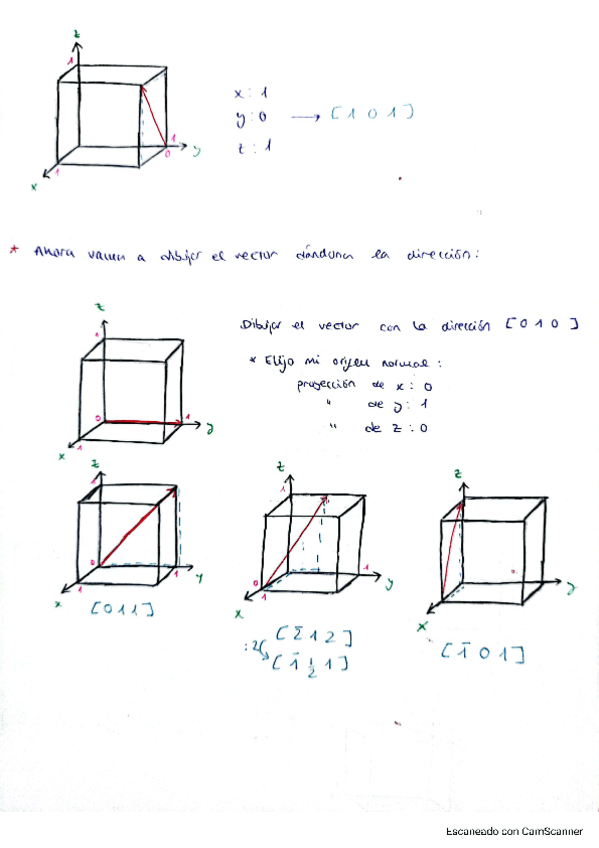 z
1
x : 1
y : 0 → [ 1 0 1 ]
z : 1
1
0
y
1
x
* Ahora vamos a dibujar el vector dándonos la dirección :
z
Dibujar el vector con la dirección [ 0 1 0 ]
1
* Elijo mi origen normal :
proyección de x : 0
" de y : 1
" de z : 0
0
1
y
1
x
z
1
0
1
y
1
x
[ 0 1 1 ]
z
1
0
1
y
1
x
[ 2̅ 1 2 ]
: 2
[ 1̅ 1/2 1 ]
z
y
x
[ 1̅ 0 1 ]
Escaneado con CamScanner